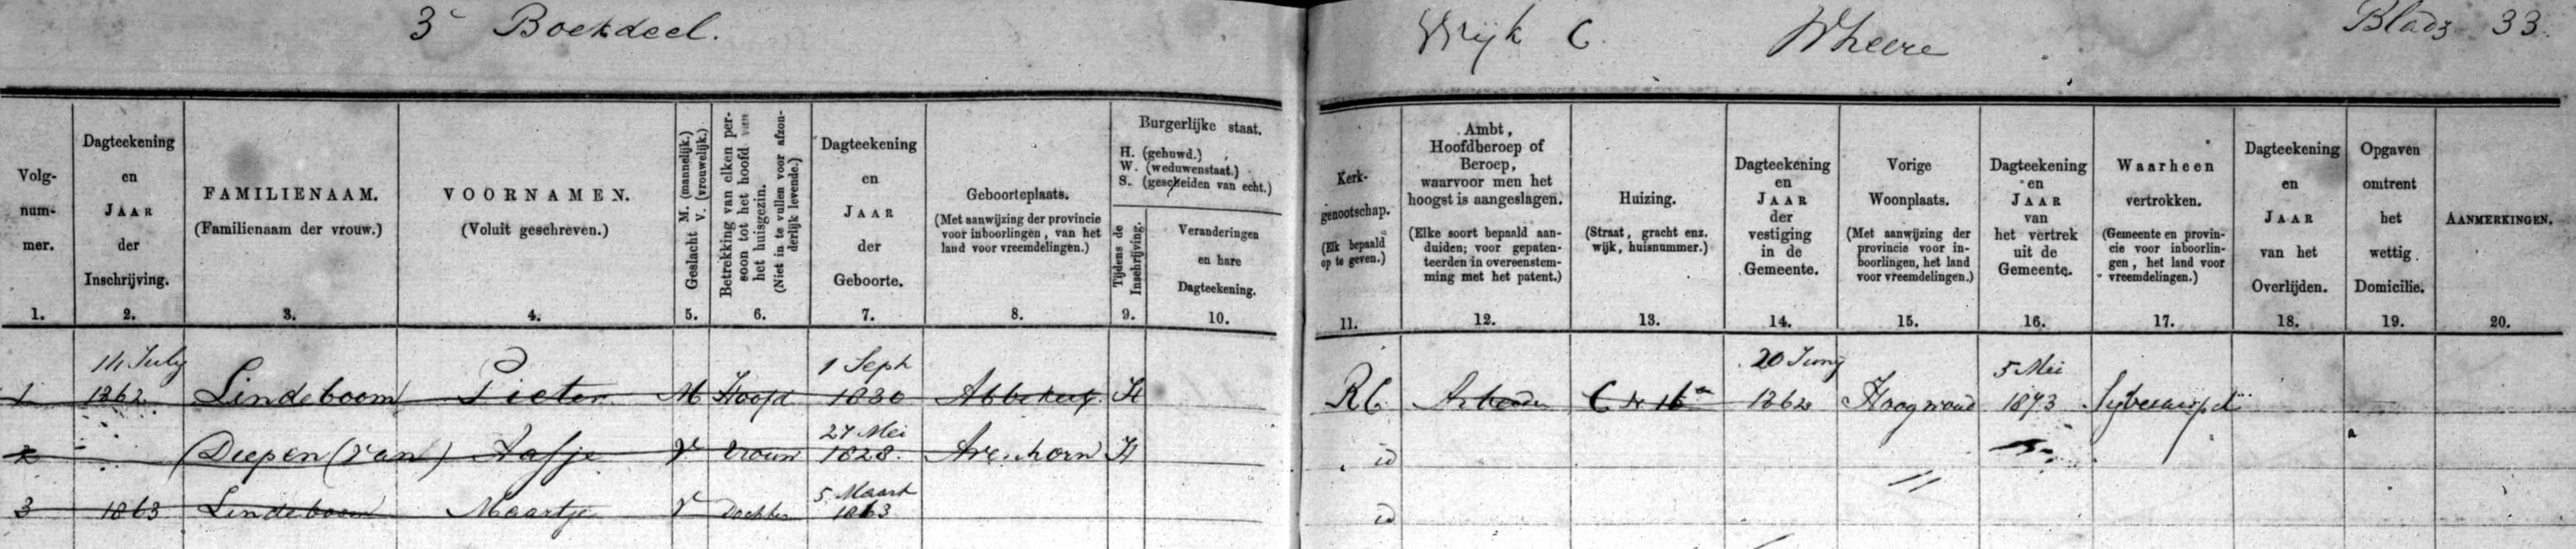 3e Boekdeel.
Wijk C. Wheere Bladz 33.
Volg-
num-
mer.
1.
Dagteekening
en
JAAR
der
Inschrijving.
2.
FAMILIENAAM.
(Familienaam der vrouw.)
3.
VOORNAMEN.
(Voluit geschreven.)
4.
Geslacht M. (mannelijk.)
V. (vrouwelijk.)
5.
Betrekking van elken per-
soon tot het hoofd van
het huisgezin.
(Niet in te vullen voor afzon-
derlijk levende.)
6.
Dagteekening
en
JAAR
der
Geboorte.
7.
Geboorteplaats.
(Met aanwijzing der provincie
voor inboorlingen, van het
land voor vreemdelingen.)
8.
Burgerlijke staat.
H. (gehuwd.)
W. (weduwenstaat.)
S. (gescheiden van echt.)
Tijdens de
Inschrijving.
9.
Veranderingen
en hare
Dagteekening.
10.
Kerk-
genootschap.
(Elk bepaald
op te geven.)
11.
Ambt,
Hoofdberoep of
Beroep,
waarvoor men het
hoogst is aangeslagen.
(Elke soort bepaald aan-
duiden; voor gepaten-
teerden in overeenstem-
ming met het patent.)
12.
Huizing.
(Straat, gracht enz.
wijk, huisnummer.)
13.
Dagteekening
en
JAAR
der
vestiging
in de
Gemeente.
14.
Vorige
Woonplaats.
(Met aanwijzing der
provincie voor in-
boorlingen, het land
voor vreemdelingen.)
15.
Dagteekening
en
JAAR
van
het vertrek
uit de
Gemeente.
16.
Waarheen
vertrokken.
(Gemeente en provin-
cie voor inboorlin-
gen, het land voor
vreemdelingen.)
17.
Dagteekening
en
JAAR
van het
Overlijden.
18.
Opgaven
omtrent
het
wettig
Domicilie.
19.
AANMERKINGEN.
20.
14 July 1 Sept 20 Juny 5 Mei
1 1862 Lindeboom Pieter M Hoofd 1830 Abbekerk H RC Arbeider C N 16a 1862 Hoogwoud 1873
27 Mei
2 Diepen (van) Aafje V vrouw 1828. Avenhorn H id
5 Maart
3 1863 Lindeboom Maartje V dochter 1863 id